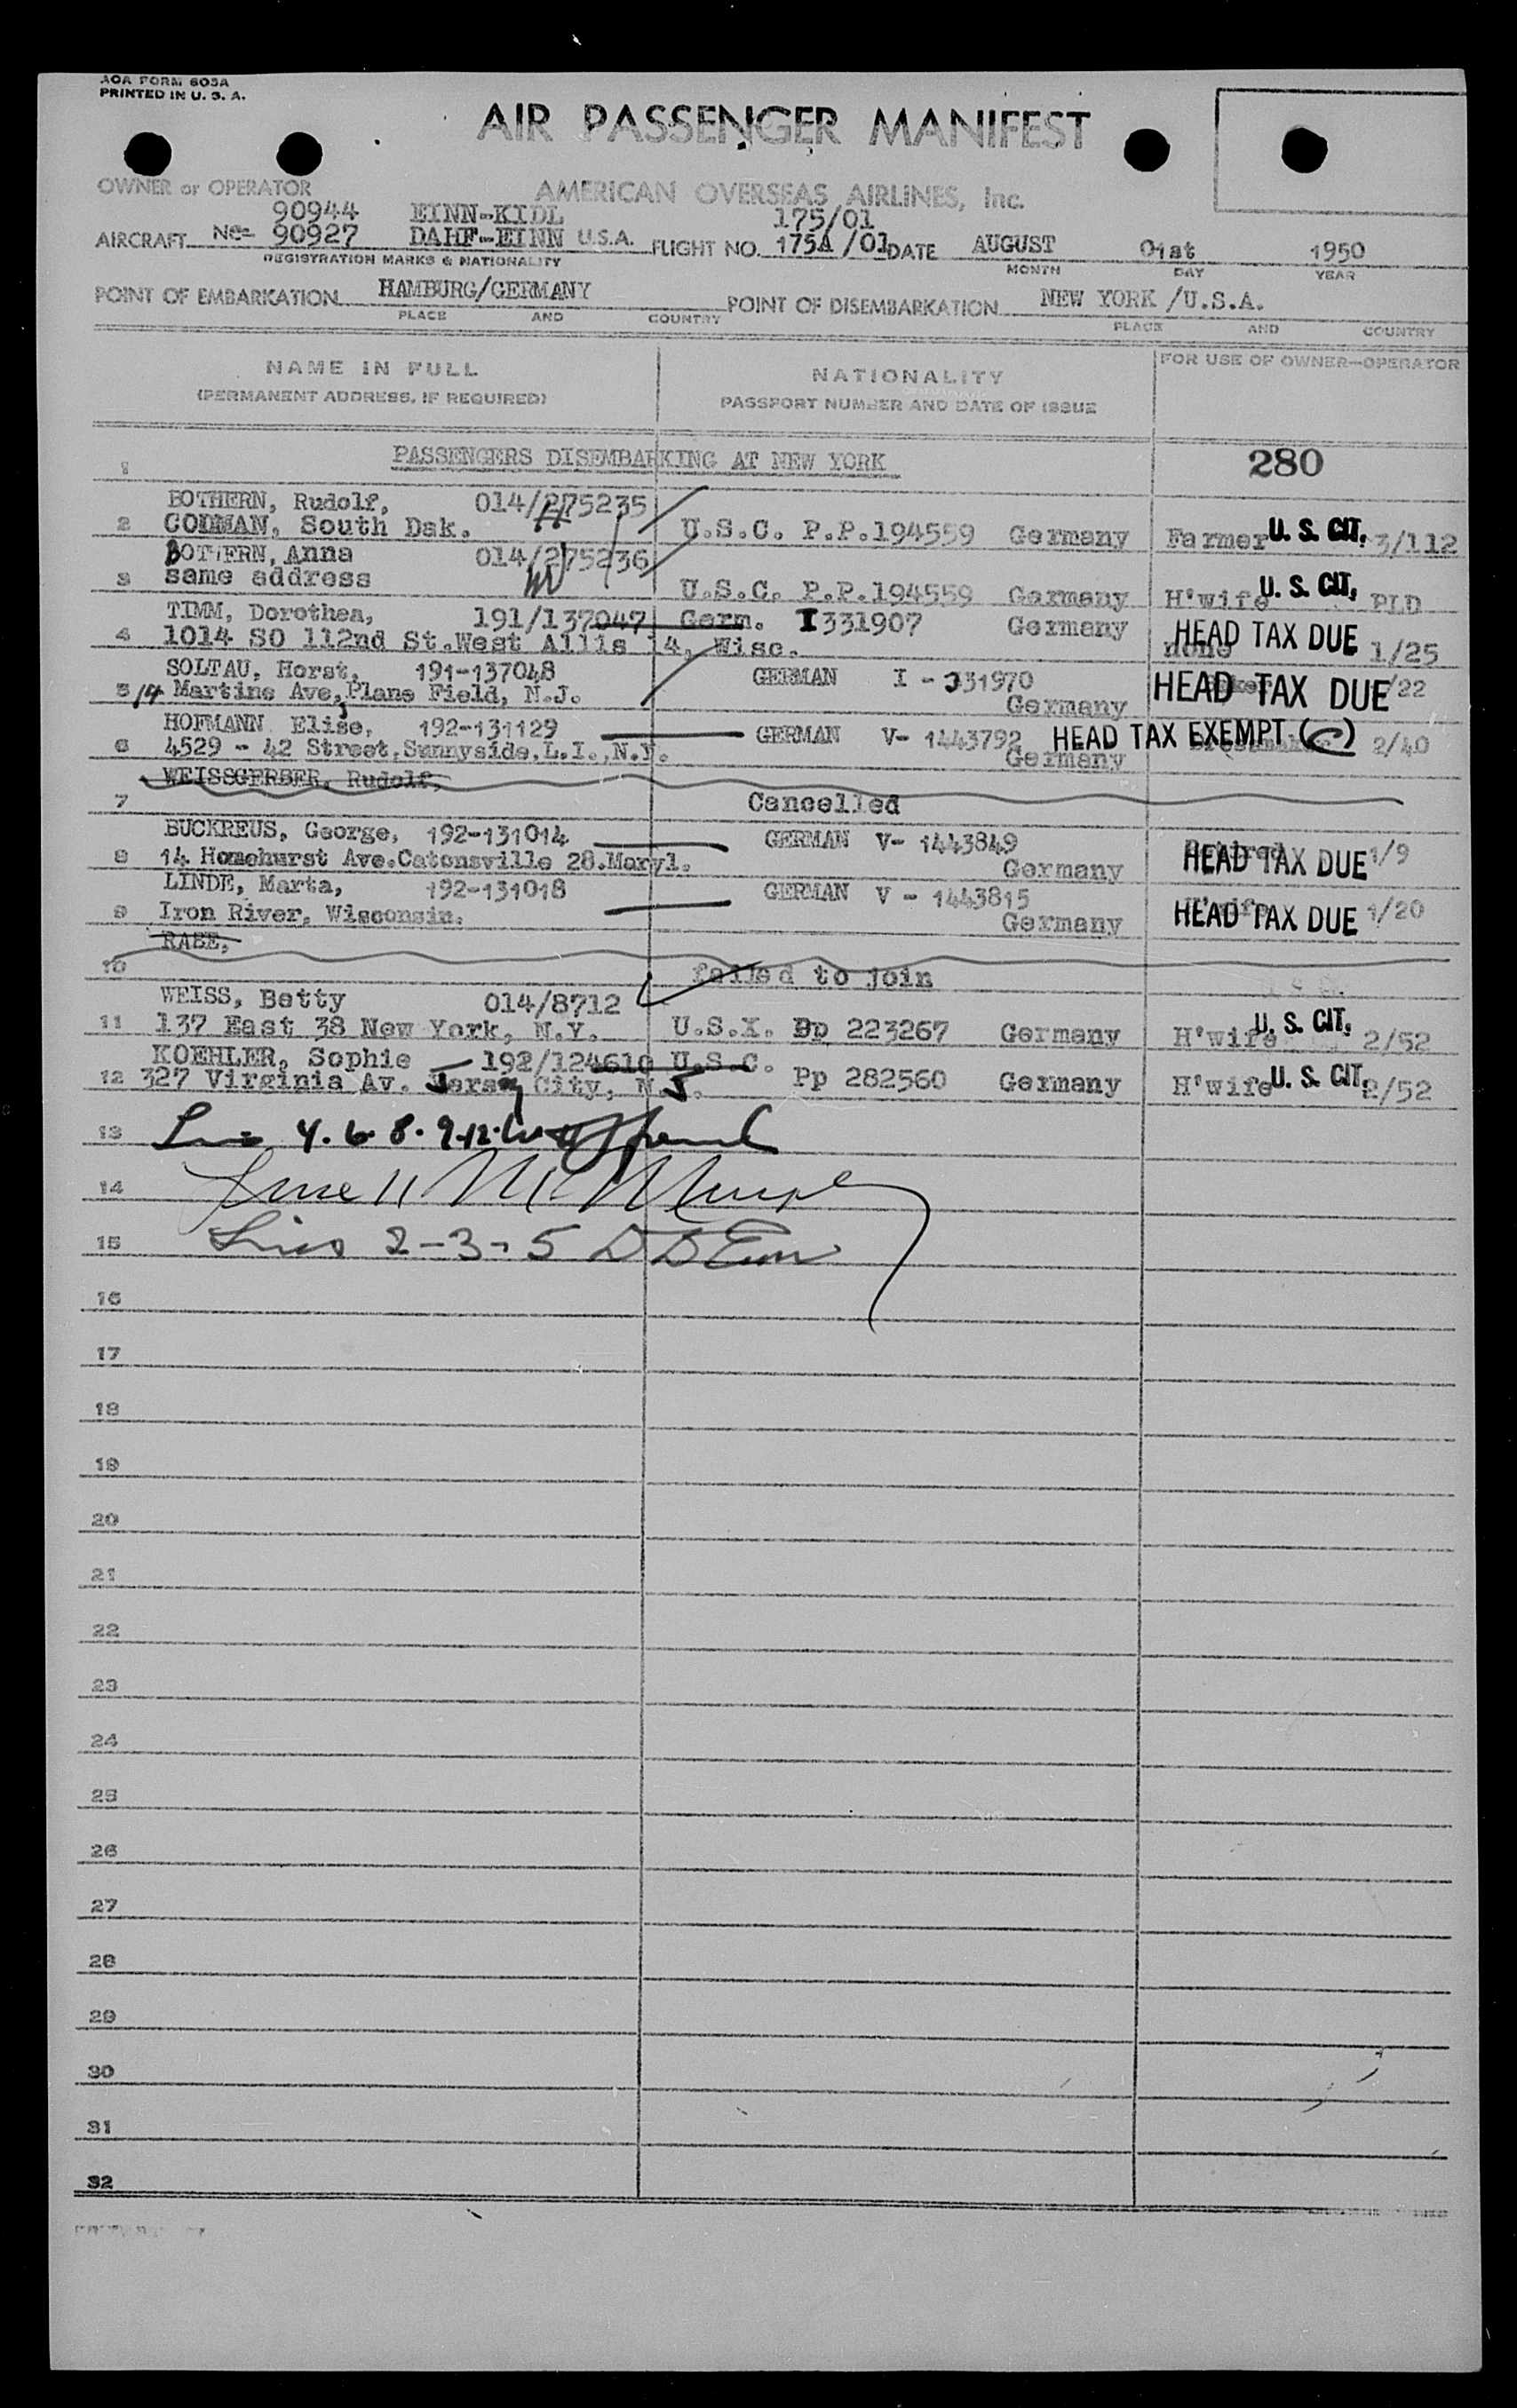 AOA FORM 603A
PRINTED IN U. S. A.
AIR PASSENGER MANIFEST
OWNER or OPERATOR AMERICAN OVERSEAS AIRLINES, Inc.
90944 EINN-KIDL 175/01
AIRCRAFT Nc- 90927 DAHF-EINN U.S.A. FLIGHT NO. 175A /01 DATE AUGUST 01st 1950
REGISTRATION MARKS & NATIONALITY MONTH DAY YEAR
POINT OF EMBARKATION HAMBURG/GERMANY POINT OF DISEMBARKATION NEW YORK /U.S.A.
PLACE AND COUNTRY PLACE AND COUNTRY
NAME IN FULL NATIONALITY FOR USE OF OWNER-OPERATOR
(PERMANENT ADDRESS, IF REQUIRED) PASSPORT NUMBER AND DATE OF ISSUE
1 PASSENGERS DISEMBARKING AT NEW YORK 280
BOTHERN, Rudolf, 014/275235
2 CODMAN, South Dak. U.S.C. P.P.194559 Germany Farmer U. S. CIT. 3/112
BOTHERN, Anna 014/275236
3 same address U.S.C. P.P.194559 Germany H'wife U. S. CIT. PLD
TIMM, Dorothea, 191/137047 Germ. I331907 Germany
4 1014 SO 112nd St.West Allis 14, Wisc. none HEAD TAX DUE 1/25
SOLTAU, Horst, 191-137048 GERMAN I - 331970
5 14 Martins Ave, Plane Field, N.J. Germany HEAD TAX DUE /22
HOFMANN Elise, 192-131129 GERMAN V- 1443792 HEAD TAX EXEMPT (C)
6 4529 - 42 Street,Sunnyside,L.I.,N.Y. Germany 2/40
WEISSGERBER, Rudolf,
7 Cancelled
BUCKREUS, George, 192-131014 GERMAN V- 1443849
8 14 Homehurst Ave.Catonsville 28.Maryl. Germany HEAD TAX DUE 1/9
LINDE, Marta, 192-131018 GERMAN V - 1443815
9 Iron River, Wisconsin. Germany H'wife HEAD TAX DUE 1/20
RABE,
10 failed to join
WEISS, Betty 014/8712
11 137 East 38 New York, N.Y. U.S.X. Pp 223267 Germany H'wife U. S. CIT. 2/52
KOEHLER, Sophie 192/124610 U.S.C.
12 327 Virginia Av. Jersey City, N.J. Pp 282560 Germany H'wife U. S. CIT. 2/52
13 4. 6. 8. 9.12.
14
15 Lines 2-3-5
16
17
18
19
20
21
22
23
24
25
26
27
28
29
30
31
32